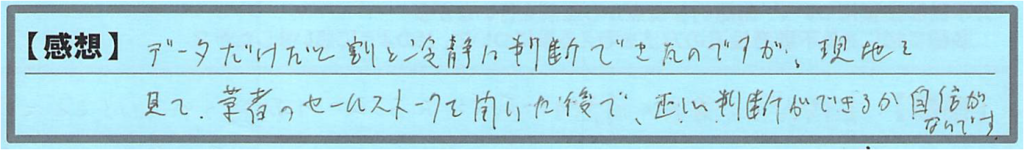 【感想】 データだけだと割と冷静に判断できたのですが、現地を
見て、業者のセールストークを聞いた後で、正しい判断ができるか自信が
ないです